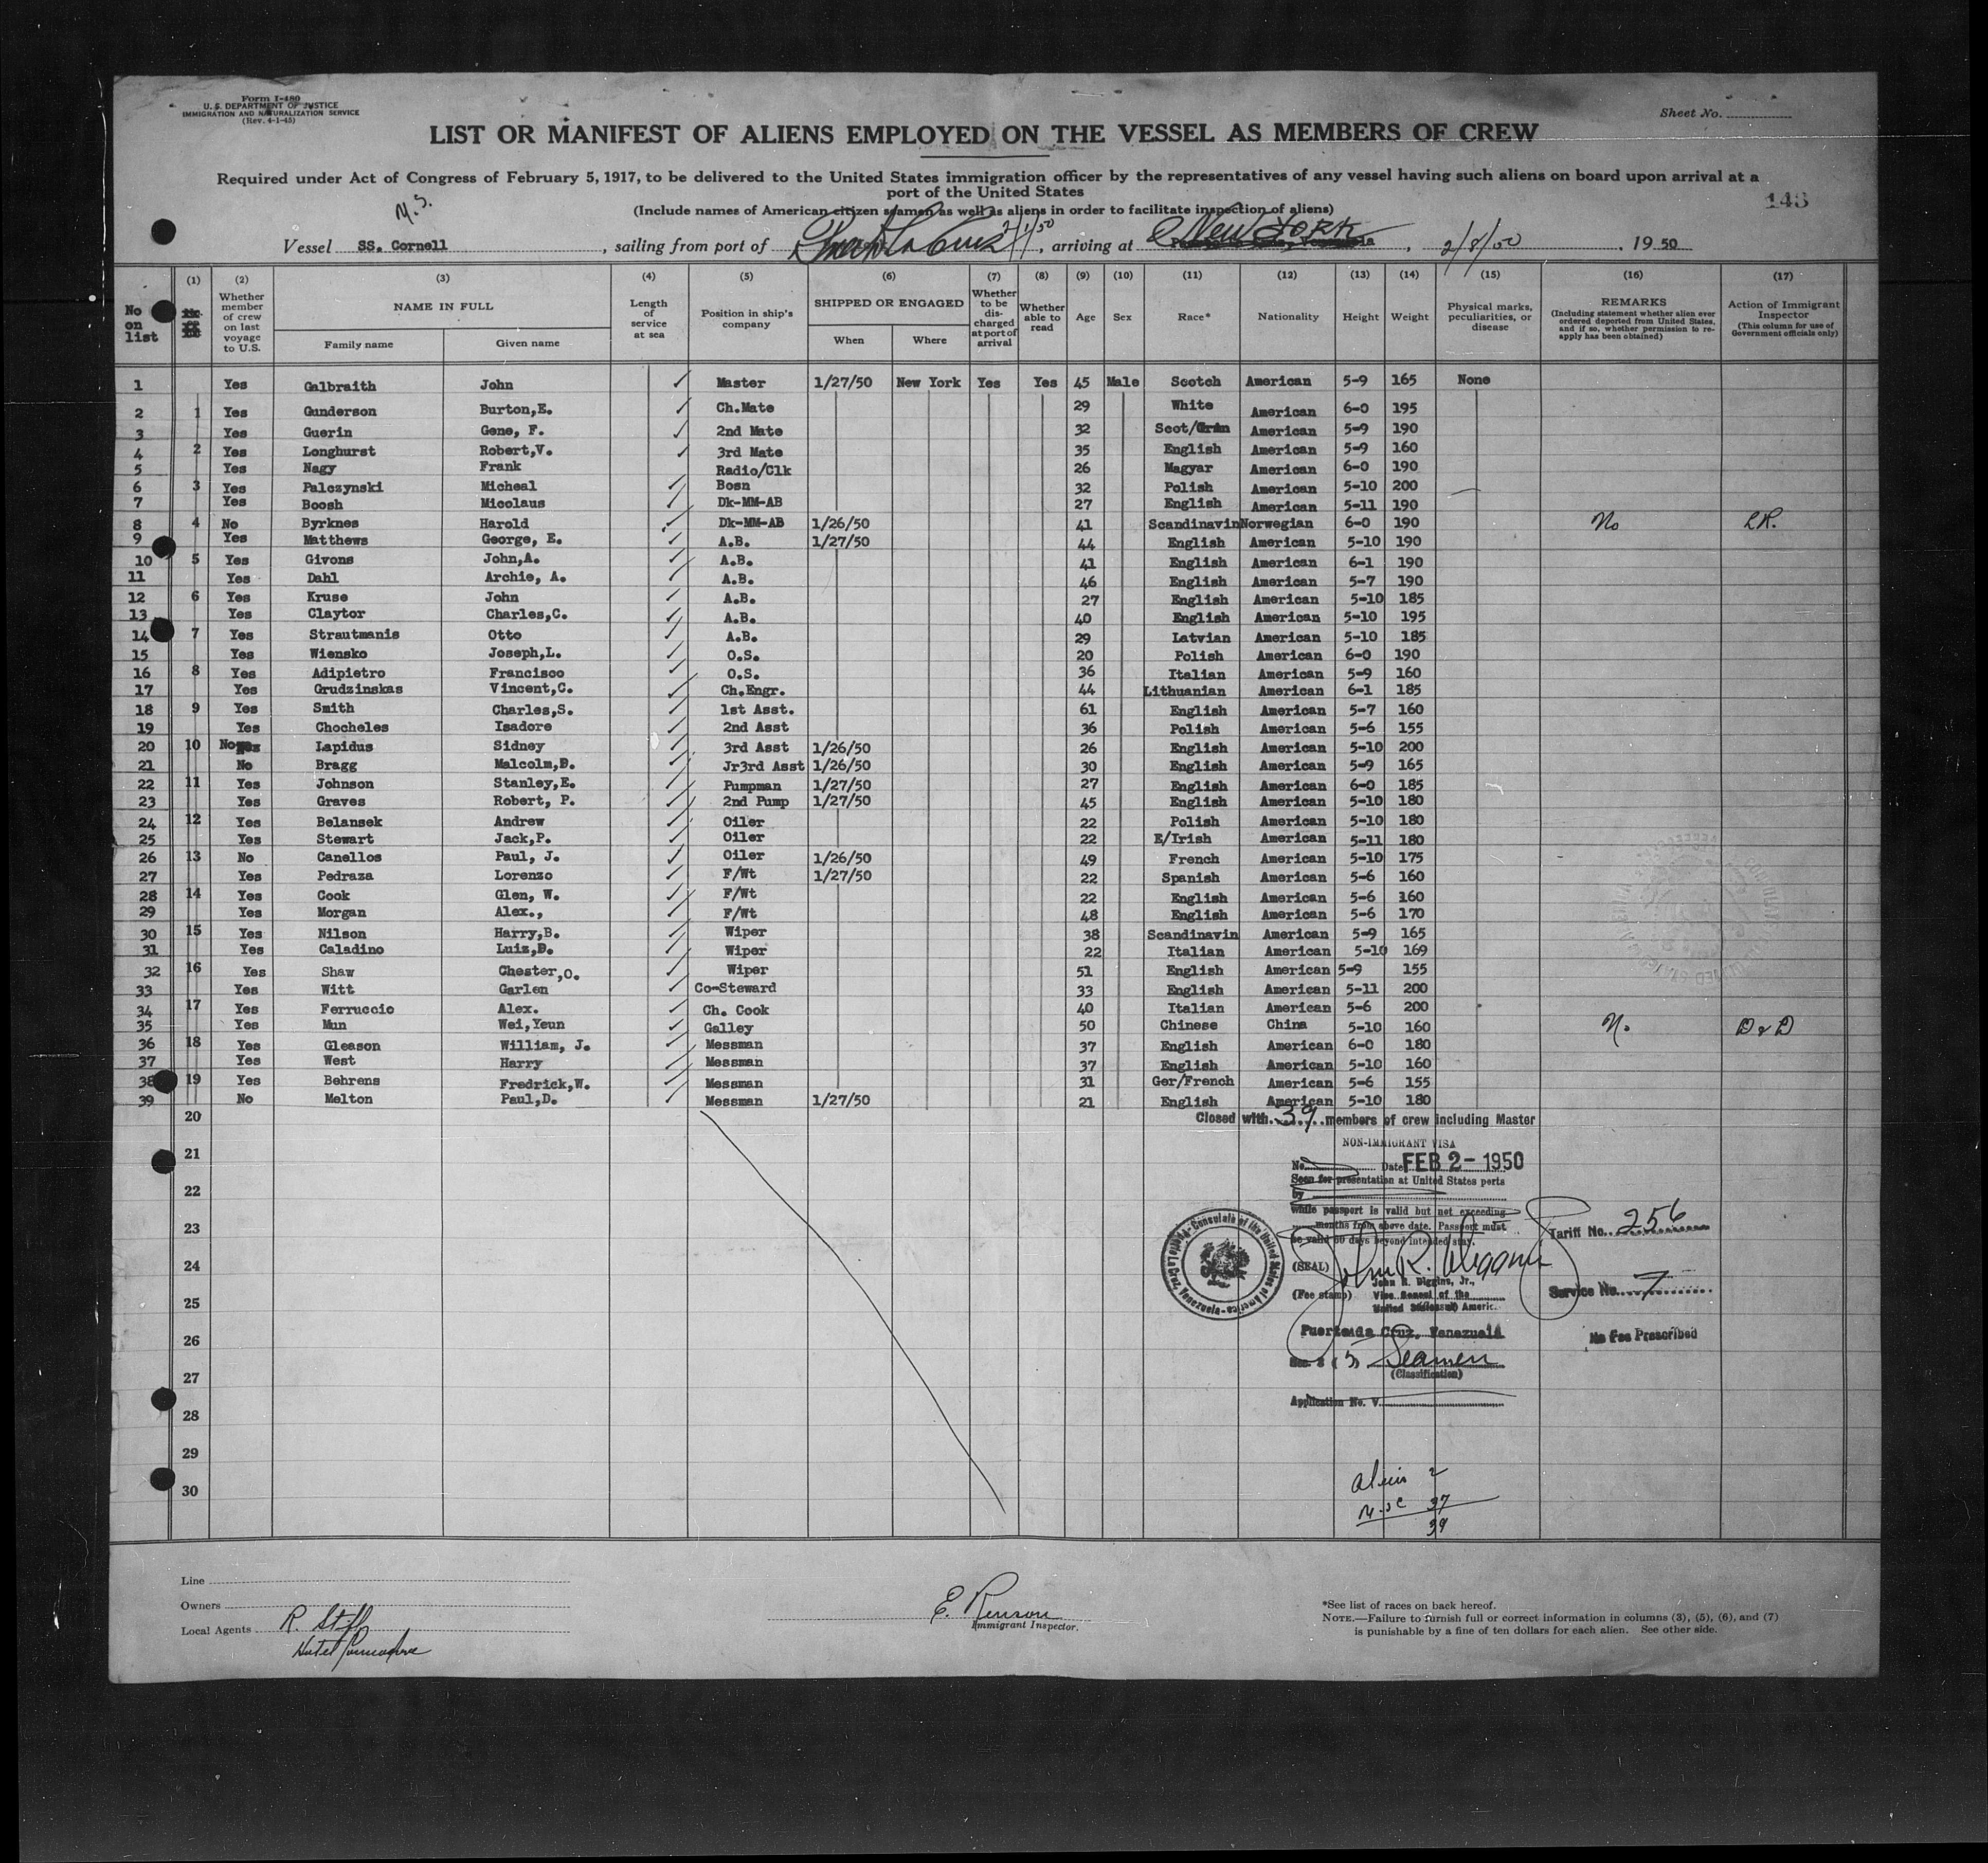 Form I-480
U. S. DEPARTMENT OF JUSTICE
IMMIGRATION AND NATURALIZATION SERVICE
(Rev. 4-1-45)
Sheet No.
LIST OR MANIFEST OF ALIENS EMPLOYED ON THE VESSEL AS MEMBERS OF CREW
Required under Act of Congress of February 5, 1917, to be delivered to the United States immigration officer by the representatives of any vessel having such aliens on board upon arrival at a
port of the United States
143
(Include names of American citizen seamen as well as aliens in order to facilitate inspection of aliens)
M.S.
Vessel SS. Cornell, sailing from port of 2/1/50, arriving at New York, 2/8/50, 19 50
No on list
(1)
(2) Whether member of crew on last voyage to U.S.
(3) NAME IN FULL
Family name Given name
(4) Length of service at sea
(5) Position in ship's company
(6) SHIPPED OR ENGAGED
When Where
(7) Whether to be discharged at port of arrival
(8) Whether able to read
(9) Age
(10) Sex
(11) Race*
(12) Nationality
(13) Height
(14) Weight
(15) Physical marks, peculiarities, or disease
(16) REMARKS (Including statement whether alien ever ordered deported from United States, and if so, whether permission to re-apply has been obtained)
(17) Action of Immigrant Inspector (This column for use of Government officials only)
1 Yes Galbraith John Master 1/27/50 New York Yes Yes 45 Male Scotch American 5-9 165 None
2 1 Yes Gunderson Burton,E. Ch.Mate 29 White American 6-0 195
3 Yes Guerin Gene, F. 2nd Mate 32 Scot/ American 5-9 190
4 2 Yes Longhurst Robert,V. 3rd Mate 35 English American 5-9 160
5 Yes Nagy Frank Radio/Clk 26 Magyar American 6-0 190
6 3 Yes Palczynski Micheal Bosn 32 Polish American 5-10 200
7 Yes Boosh Micolaus Dk-MM-AB 27 English American 5-11 190
8 4 No Byrknes Harold Dk-MM-AB 1/26/50 41 Scandinavin Norwegian 6-0 190 No LR.
9 Yes Matthews George, E. A.B. 1/27/50 44 English American 5-10 190
10 5 Yes Givons John,A. A.B. 41 English American 6-1 190
11 Yes Dahl Archie, A. A.B. 46 English American 5-7 190
12 6 Yes Kruse John A.B. 27 English American 5-10 185
13 Yes Claytor Charles,C. A.B. 40 English American 5-10 195
14 7 Yes Strautmanis Otto A.B. 29 Latvian American 5-10 185
15 Yes Wiensko Joseph,L. O.S. 20 Polish American 6-0 190
16 8 Yes Adipietro Francisco O.S. 36 Italian American 5-9 160
17 Yes Grudzinskas Vincent,C. Ch.Engr. 44 Lithuanian American 6-1 185
18 9 Yes Smith Charles,S. 1st Asst. 61 English American 5-7 160
19 Yes Chocheles Isadore 2nd Asst 36 Polish American 5-6 155
20 10 No Lapidus Sidney 3rd Asst 1/26/50 26 English American 5-10 200
21 No Bragg Malcolm,D. Jr3rd Asst 1/26/50 30 English American 5-9 165
22 11 Yes Johnson Stanley,E. Pumpman 1/27/50 27 English American 6-0 185
23 Yes Graves Robert, P. 2nd Pump 1/27/50 45 English American 5-10 180
24 12 Yes Belansek Andrew Oiler 22 Polish American 5-10 180
25 Yes Stewart Jack,P. Oiler 22 E/Irish American 5-11 180
26 13 No Canellos Paul, J. Oiler 1/26/50 49 French American 5-10 175
27 Yes Pedraza Lorenzo F/Wt 1/27/50 22 Spanish American 5-6 160
28 14 Yes Cook Glen, W. F/Wt 22 English American 5-6 160
29 Yes Morgan Alex., F/Wt 48 English American 5-6 170
30 15 Yes Nilson Harry,B. Wiper 38 Scandinavin American 5-9 165
31 Yes Caladino Luiz,D. Wiper 22 Italian American 5-10 169
32 16 Yes Shaw Chester,O. Wiper 51 English American 5-9 155
33 Yes Witt Garlen Co-Steward 33 English American 5-11 200
34 17 Yes Ferruccio Alex. Ch. Cook 40 Italian American 5-6 200
35 Yes Mun Wei,Yeun Galley 50 Chinese China 5-10 160 No D & D
36 18 Yes Gleason William, J. Messman 37 English American 6-0 180
37 Yes West Harry Messman 37 English American 5-10 160
38 19 Yes Behrens Fredrick,W. Messman 31 Ger/French American 5-6 155
39 No Melton Paul,D. Messman 1/27/50 21 English American 5-10 180
20
Closed with 39 members of crew including Master
NON-IMMIGRANT VISA
21
No. Date FEB 2- 1950
Seen for presentation at United States ports
22
by
while passport is valid but not exceeding
months from above date. Passport must
be valid 60 days beyond intended stay.
23
Tariff No. 256
24
(SEAL) John R. Diggins
John R. Diggins, Jr.,
(Fee stamp) Vice Consul of the
United States of Americ.
Consulate of the United States of America - Puerto La Cruz, Venezuela
25
Service No. 7
26
Puerto la Cruz, Venezuela
No Fee Prescribed
Sec. 3 (5) Seamen
(Classification)
27
Application No. V
28
29
30
Aliens 2
U.S.C 37
39
Line
Owners
Local Agents R. Stiff
Hotel
E. Renson
Immigrant Inspector.
*See list of races on back hereof.
NOTE.—Failure to furnish full or correct information in columns (3), (5), (6), and (7)
is punishable by a fine of ten dollars for each alien. See other side.